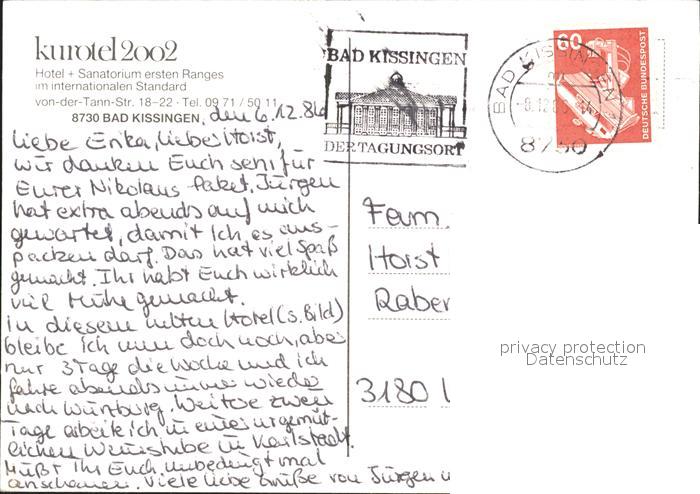 kurotel 2002
Hotel + Sanatorium ersten Ranges
im internationalen Standard
von-der-Tann-Str. 18–22 · Tel. 09 71 / 50 11
8730 BAD KISSINGEN, den 6.12.86
Liebe Erika, lieber Horst,
wir danken Euch sehr für
Eurer Nikolaus Paket. Jürgen
hat extra abends auf mich
gewartet, damit ich es aus-
packen darf. Das hat viel Spaß
gemacht. Ihr habt Euch wirklich
viel Mühe gemacht.
in diesem netten Hotel (s. Bild)
bleibe ich nun doch noch, aber
nur 3 Tage die Woche und ich
fahre abends immer wieder
nach Würzburg. Weitere zwei
Tage arbeite ich in einer urgemüt-
lichen Weinstube in Karlstadt.
Müßt Ihr Euch unbedingt mal
anschauen. Viele liebe Grüße von Jürgen u
BAD KISSINGEN
DER TAGUNGSORT
BAD KISSINGEN
8730
60
DEUTSCHE BUNDESPOST
Fam.
Horst
Raber
3180
privacy protection
Datenschutz